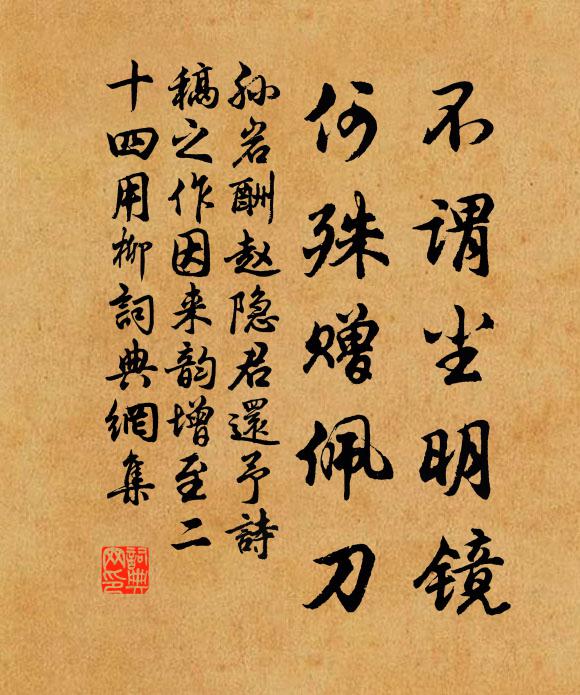 不谓尘明镜
何殊赠佩刀
孙岩酬赵隐君還予詩
稿之作因来韵增至二
十四用柳詞典網集
詞典网印